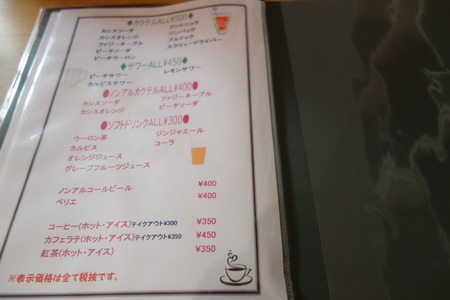 ◆カクテルALL¥500◆
カシスソーダ ジントニック
カシスオレンジ ジンバック
ファジーネーブル ブルドック
ピーチソーダ スクリュードライバー
ピーチウーロン
◆サワーALL¥450◆
ピーチサワー レモンサワー
カルピスサワー
●ノンアルカクテルALL¥400●
カシスソーダ ファジーネーブル
カシスオレンジ ピーチソーダ
●ソフトドリンクALL¥300●
ウーロン茶 ジンジャエール
カルピス コーラ
オレンジジュース
グレープフルーツジュース
ノンアルコールビール ¥400
ペリエ ¥400
コーヒー(ホット・アイス)テイクアウト¥300 ¥350
カフェラテ(ホット・アイス)テイクアウト¥350 ¥450
紅茶(ホット・アイス) ¥350
※表示価格は全て税抜です。